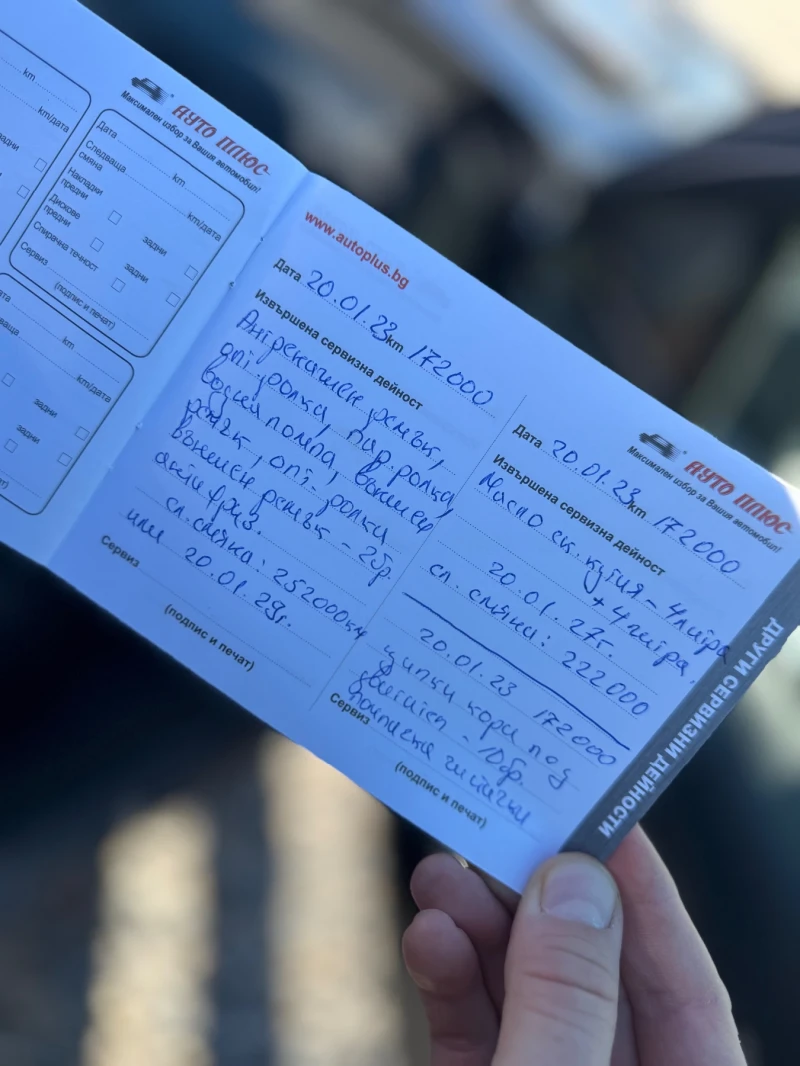 km
km/дата
задни
АУТО ПЛЮС
Максимален избор за Вашия автомобил!
Дата
km
Следваща
смяна
km/дата
Накладки
предни
задни
Дискове
предни
задни
Спирачна течност
Сервиз
(подпис и печат)
km
km/дата
задни
задни
www.autoplus.bg
Дата 20.01.23 km 172000
Извършена сервизна дейност
Ангрекашен ремък,
опт. ролка, пар. ролка,
водна помпа, външен
ремък, опт. ролка
външен ремък - 2бр.
антифриз.
сл. смяна: 252000км
или 20.01.29г.
Сервиз
(подпис и печат)
АУТО ПЛЮС
Максимален избор за Вашия автомобил!
Дата 20.01.23 km 172000
Извършена сервизна дейност
Масло ск. кутия - 4 литра
+ 4 литра,
20.01.27г.
сл. смяна: 222000
20.01.23 172000
щипки кора под
двигател - 10бр.
Сервиз
(подпис и печат)
ДРУГИ СЕРВИЗНИ ДЕЙНОСТИ